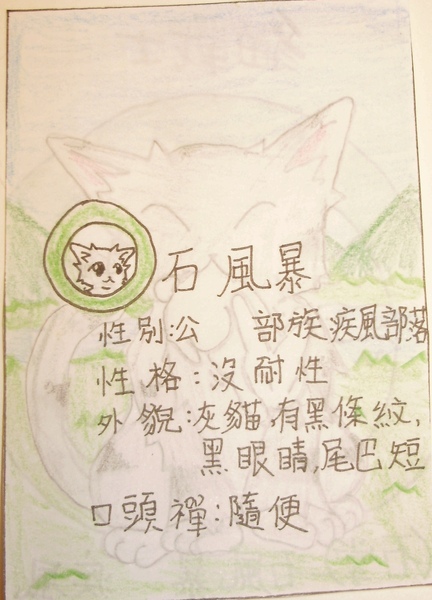 石風暴
性別:公 部族:疾風部落
性格:沒耐性
外貌:灰貓,有黑條紋,
黑眼睛,尾巴短
口頭禪:隨便